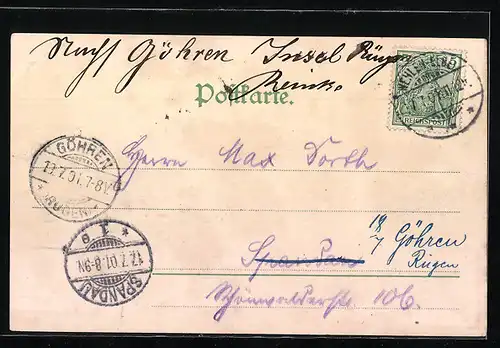 Nach Göhren Insel Rügen
Postkarte.
REICHSPOST
GÖHREN
17.7.01.7-8V.
* RÜGEN *
Herrn Max
18/7 Göhren
Rügen
Spandau
Schönwalderstr. 106.
* 1 e
17.7.01.8-9N
SPANDAU